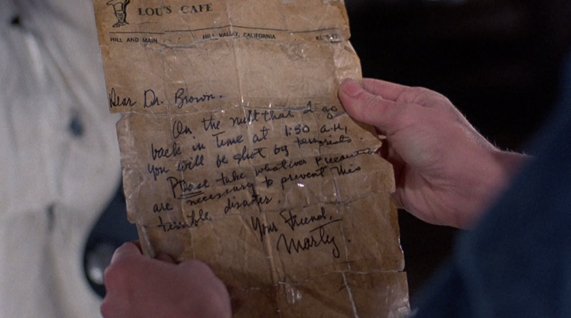 LOU'S CAFE
HILL AND MAIN HILL VALLEY, CALIFORNIA
Dear Dr. Brown.
On the night that I go
back in time at 1:30 a.m,
you will be shot by terrorists
Please take whatever precautions
are necessary to prevent this
terrible disaster.
Your Friend,
Marty.